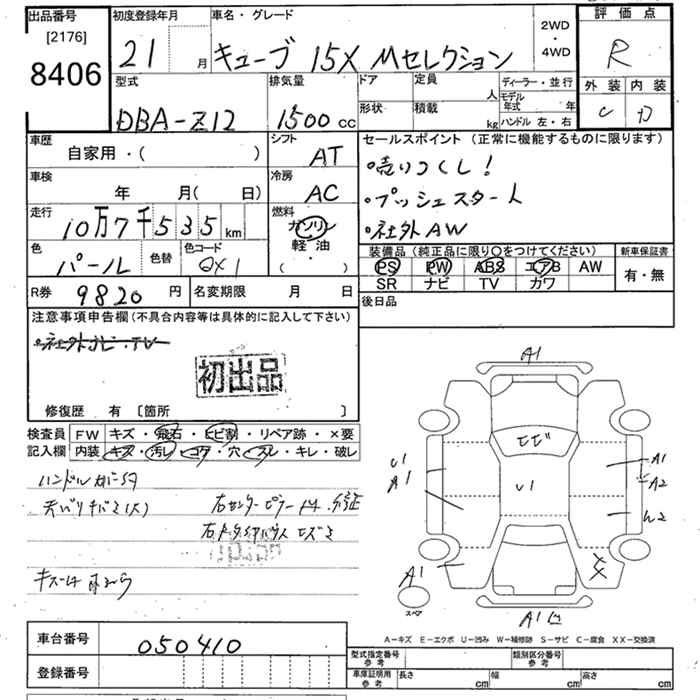 出品番号 初度登録年月 車名・グレード 2WD・4WD 評価点
[2176]
8406 21 月 キューブ 15X Mセレクション R
型式 排気量 ドア 定員 人 ディーラー・並行 外装 内装
DBA-Z12 1500 cc 形状 積載 kg モデル年式 年 ハンドル 左・右
車歴 シフト セールスポイント (正常に機能するものに限ります)
自家用・( ) AT ・売りつくし!
車検 冷房 ・プッシュスタート
年 月( 日) AC ・社外AW
走行 燃料
10万7千535 km ガソリン 軽油 ( ・ )
色 色替 色コード 装備品 (純正品に限り○をつけてください) 新車保証書
パール QX1 PS PW ABS エアB AW 有・無
SR ナビ TV カワ
R券 9820 円 名変期限 月 日 後日品
注意事項申告欄 (不具合内容等は具体的に記入して下さい)
・社外ナビ・TV
初出品
修復歴 有 [箇所 ]
検査員 FW キズ・飛石・ヒビ割・リペア跡・×要
記入欄 内装 キズ・汚レ・コゲ・穴・スレ・キレ・破レ
A1
ヒビ
U1 A1 U1 A1 A2
W2
A1
スペア
A1
A-キズ E-エクボ U-凹み W-補修跡 S-サビ C-腐食 XX-交換済
車台番号 050410
登録番号
型式指定番号 参考 類別区分番号 参考
車庫証明用 参考 長さ cm 幅 cm 高さ cm